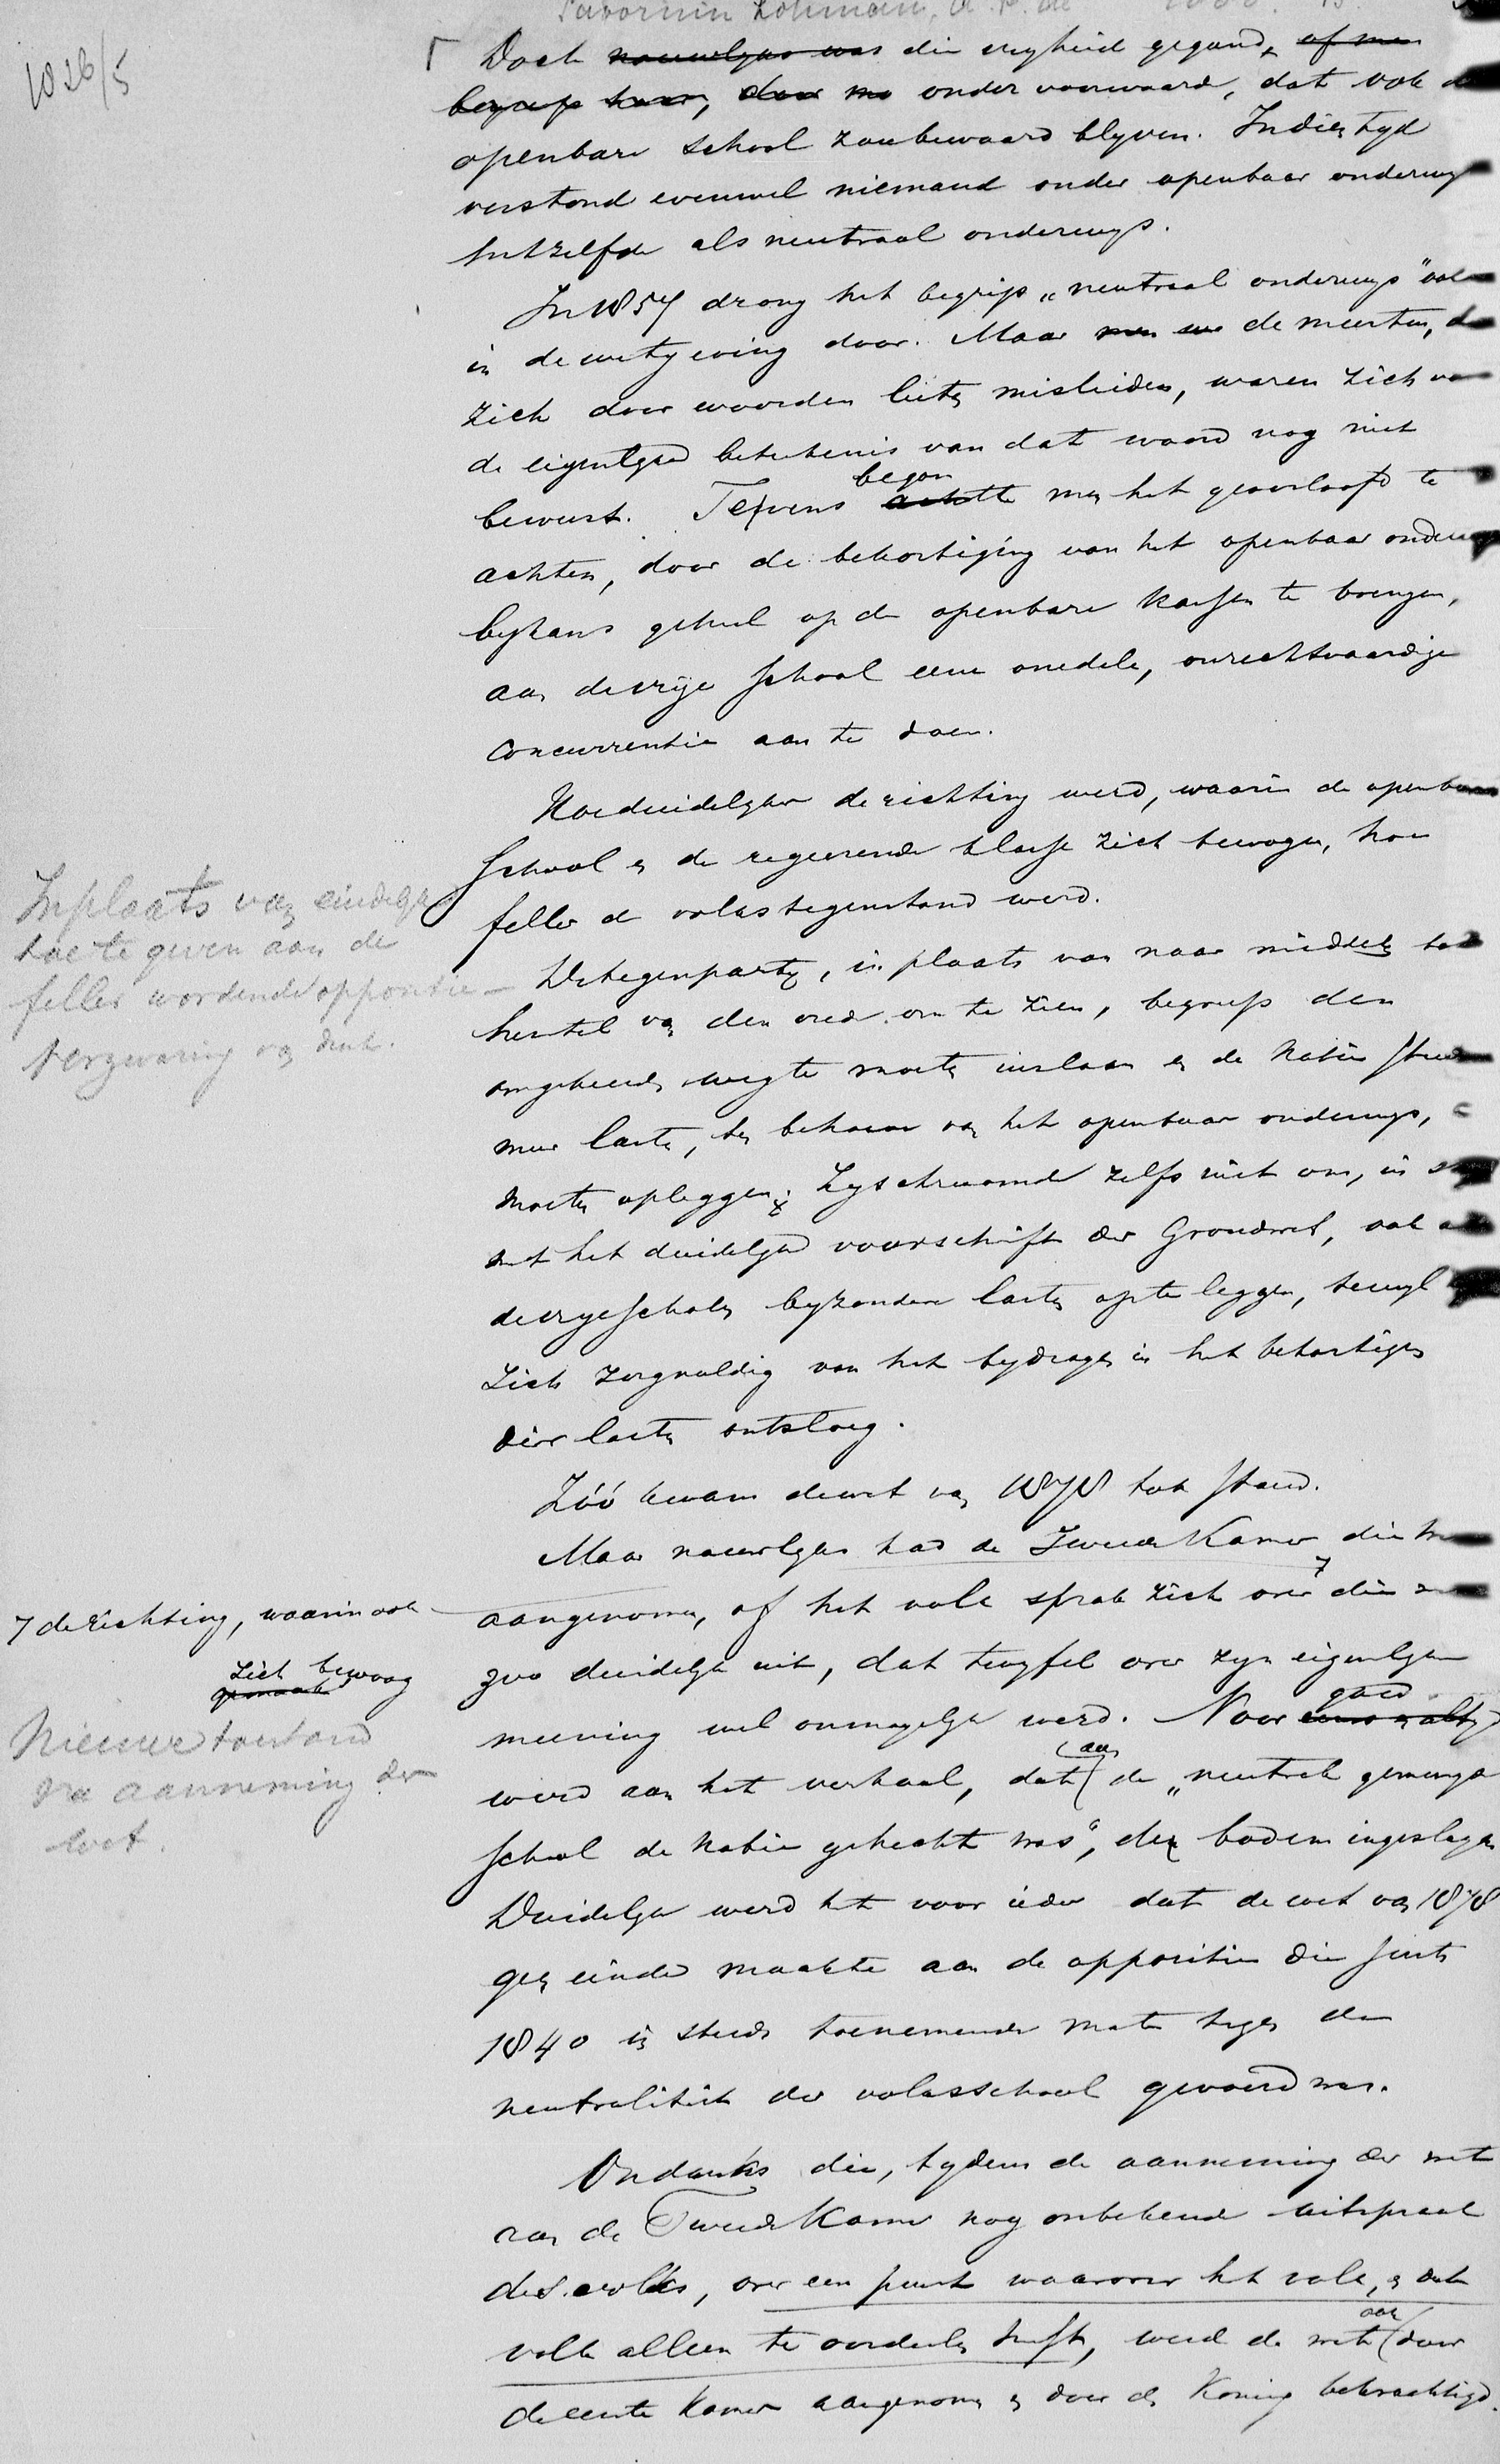 Savornin Lohman, A. F. de
1026/5
Doch nauwelyks was die vryheid gegund, of men
begreep haar, door me onder voorwaarde, dat ook de
openbare school zou bewaard blyven. In dien tyd
verstond evenwel niemand onder openbaar onderwys
hetzelfde als neutraal onderwys.
In 1857 drong het begrip „neutraal onderwys" ook
in de wetgeving door. Maar de meesten, die
zich door woorden lieten misleiden, waren zich van
de eigenlyke beteekenis van dat woord nog niet
bewust. Tevens achtte begon men het geoorloofd te
achten, door de bekostiging van het openbaar onderwys
bykans geheel op de openbare kassen te brengen,
aan de vrije school eene onedele, onrechtvaardige
concurrentie aan te doen.
Hoe duidelyker de richting werd, waarin de openbare
school en de regeerende klasse zich bewogen, hoe
feller de volkstegenstand werd.
Inplaats van eindelyk
toe te geven aan de
feller wordende oppositie
verzwaring van druk.
De tegenparty, in plaats van naar middelen tot
herstel van den vrede om te zien, begreep den
omgekeerden weg te moeten inslaan en de Natie steeds
meer lasten, ten behoeve van het openbaar onderwys,
moeten opleggen; Zy schroomde zelfs niet om, in stryd
met het duidelyk voorschrift der Grondwet, ook aan
de vrye scholen byzondere lasten op te leggen, terwyl
zich zorgvuldig van het bydragen in het bekostigen
dier lasten ontsloeg.
Zóó kwam de wet van 1878 tot stand.
Maar nauwelyks had de Tweede Kamer die
aangenomen, of het volk sprak zich over die
7 de richting, waarin ook
zich bewoog
zoo duidelyk uit, dat twyfel over zyn eigenlyke
meening wel onmogelyk werd. Voor goed
Nieuwe toestand
na aanneming der
wet.
werd aan het verhaal, dat aan de „neutrale gemengde
school de Natie gehecht was", den bodem ingeslagen
Duidelyk werd het voor ieder dat de wet van 1878
geen einde maakte aan de oppositie die sints
1840 in steeds toenemende mate tegen de
neutraliteit der volksschool gevoerd was.
Ondanks die, tydens de aanneming der wet
van de Tweede Kamer nog onbekende uitspraak
des volks, over een punt waarover het volk, en dat
volk alleen te oordeelen heeft, werd de wet ook door
de eerste Kamer aangenomen en door den Koning bekrachtigd.